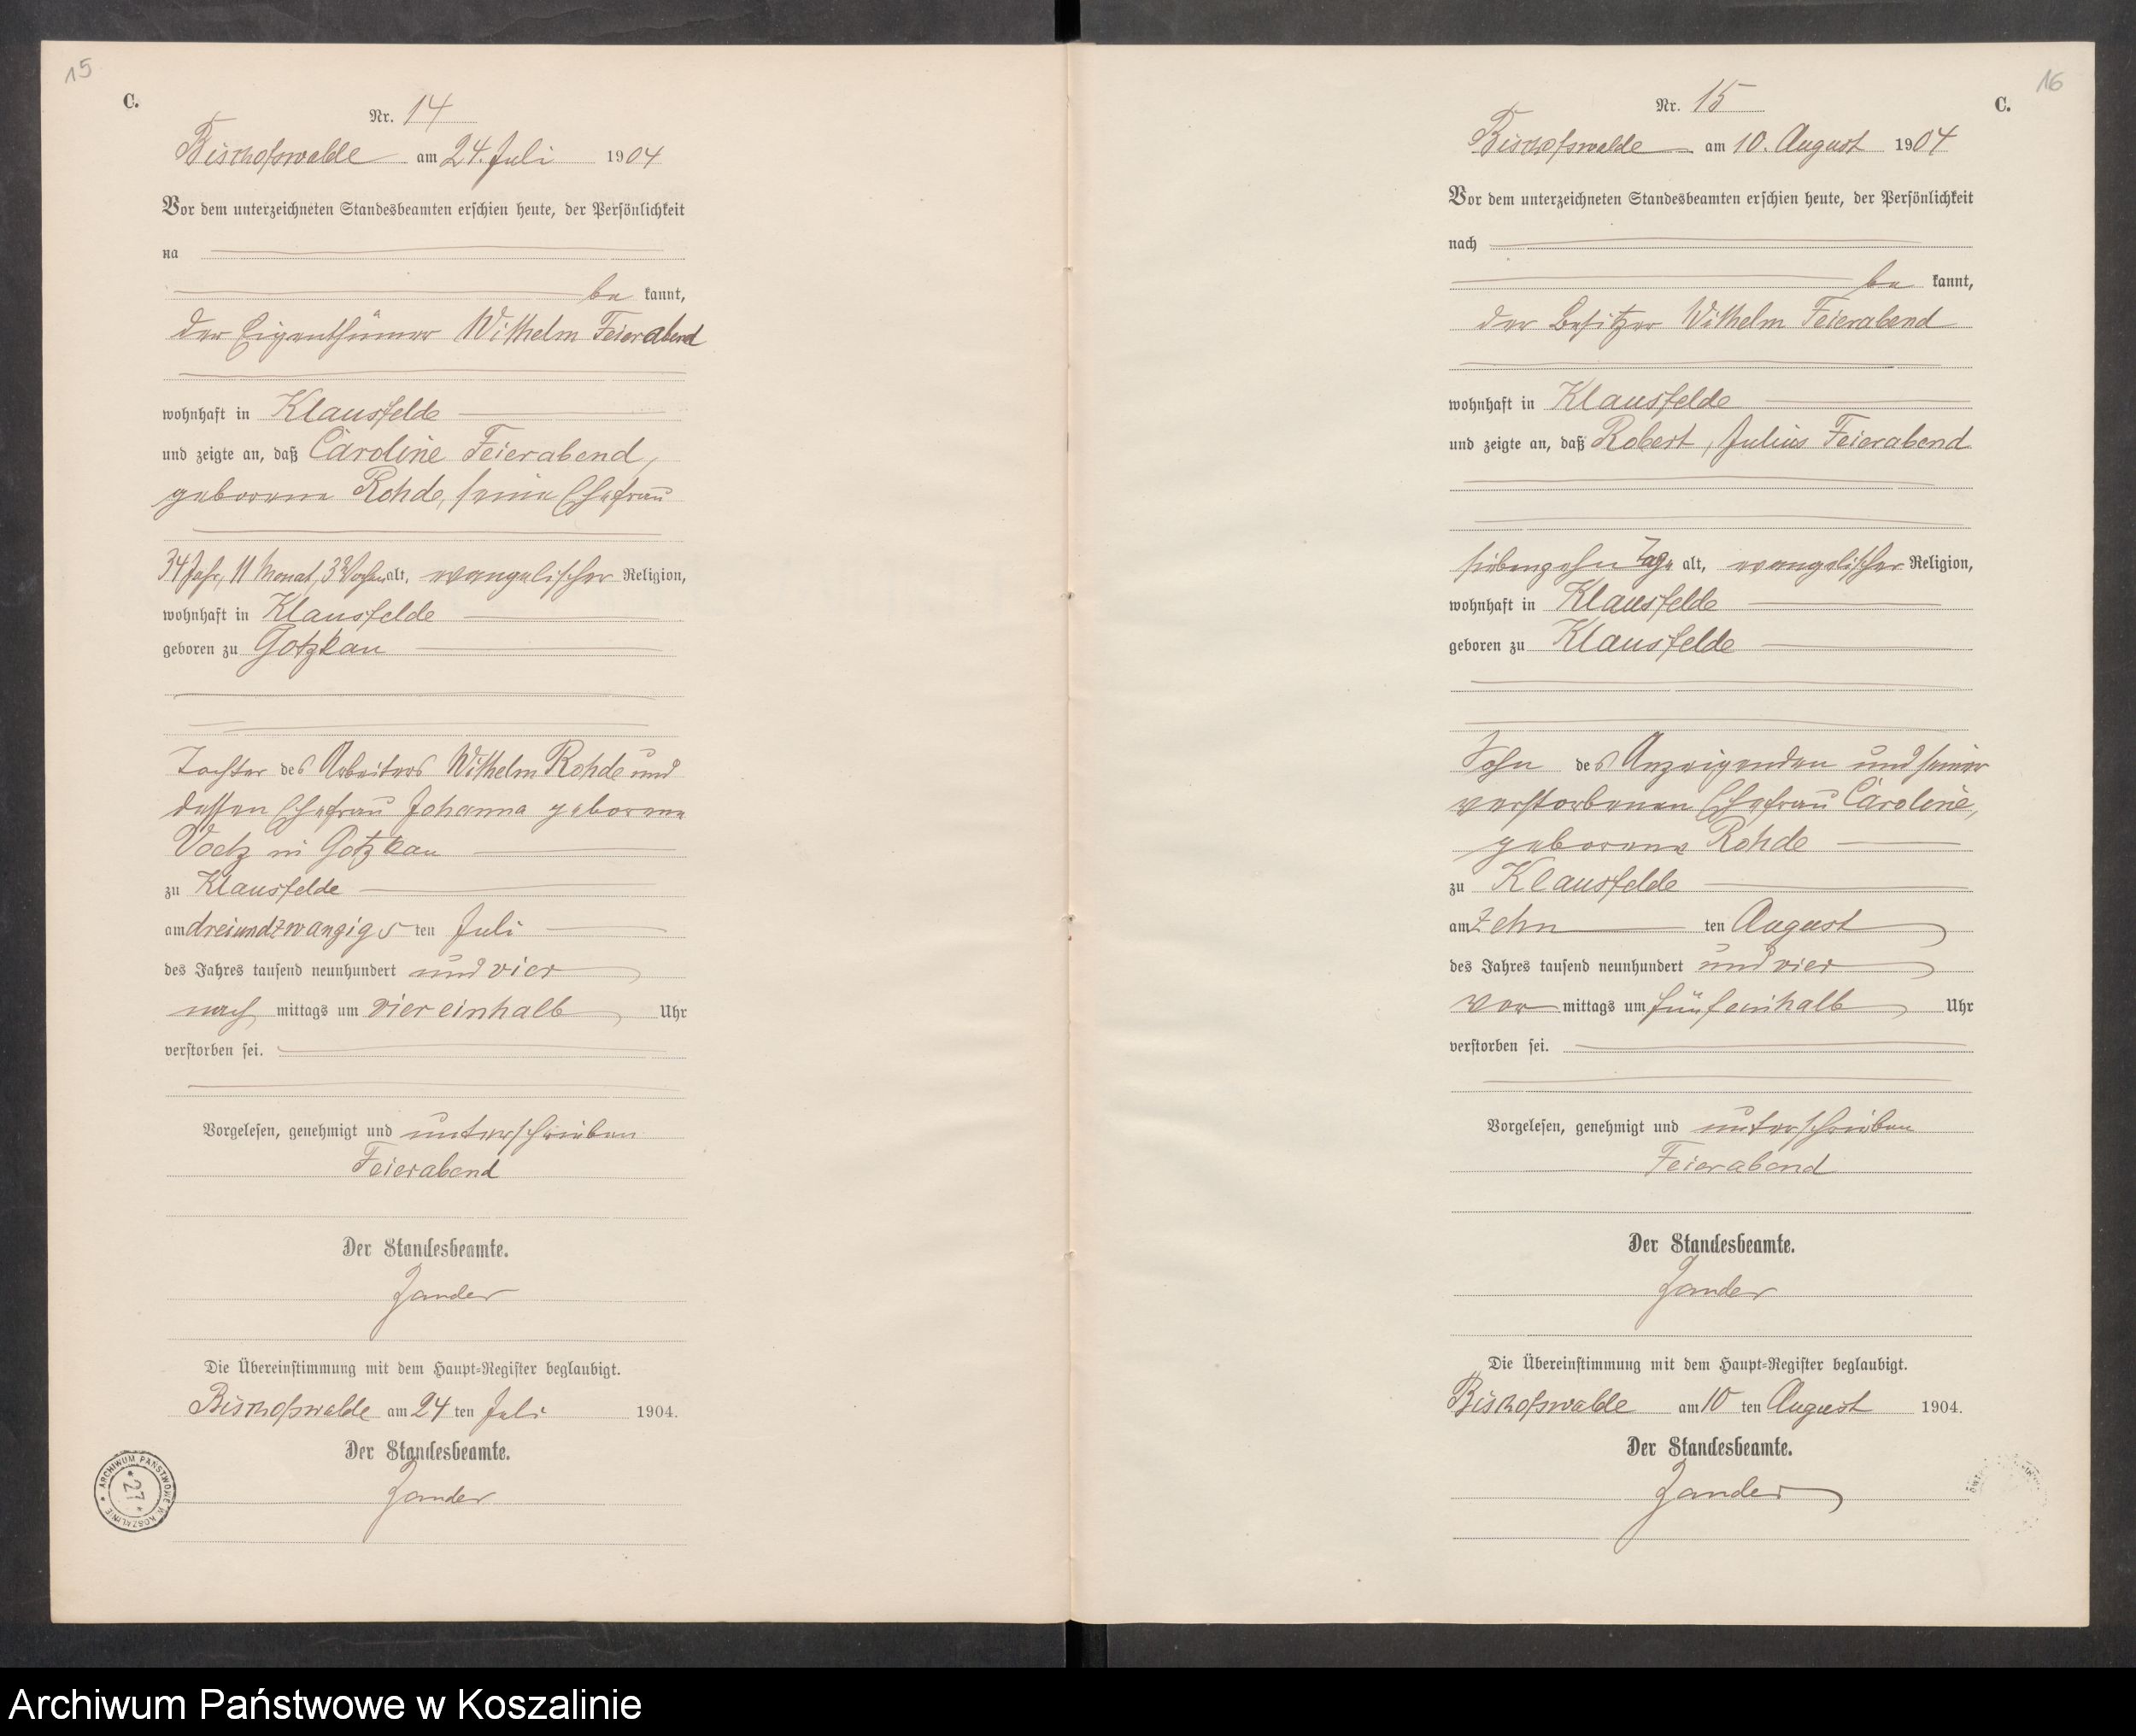 15
C.
Nr. 14
Bischofswalde am 24. Juli 1904
Vor dem unterzeichneten Standesbeamten erschien heute, der Persönlichkeit
na
be kannt,
der Eigenthümer Wilhelm Feierabend
wohnhaft in Klausfelde
und zeigte an, daß Caroline Feierabend,
geborene Rohde, seine Ehefrau
34 Jahr, 11 Monat, 3 Wochen alt, evangelischer Religion,
wohnhaft in Klausfelde
geboren zu Gotzkau
Tochter des Arbeiters Wilhelm Rohde und
dessen Ehefrau Johanna geborene
Voelz in Gotzkau
zu Klausfelde
am dreiundzwanzigs ten Juli
des Jahres tausend neunhundert und vier
nach mittags um vier einhalb Uhr
verstorben sei.
Vorgelesen, genehmigt und unterschrieben
Feierabend
Der Standesbeamte.
Zander
Die Übereinstimmung mit dem Haupt-Register beglaubigt.
Bischofswalde am 24 ten Juli 1904.
Der Standesbeamte.
Zander
ARCHIWUM PAŃSTWOWE W KOSZALINIE
* 27 *
16
C.
Nr. 15
Bischofswalde am 10. August 1904
Vor dem unterzeichneten Standesbeamten erschien heute, der Persönlichkeit
nach
be kannt,
der Besitzer Wilhelm Feierabend
wohnhaft in Klausfelde
und zeigte an, daß Robert, Julius Feierabend
siebenzehn Tage alt, evangelischer Religion,
wohnhaft in Klausfelde
geboren zu Klausfelde
Sohn des Anzeigenden und seiner
verstorbenen Ehefrau Caroline,
geborene Rohde
zu Klausfelde
am zehn ten August
des Jahres tausend neunhundert und vier
vor mittags um fünf einhalb Uhr
verstorben sei.
Vorgelesen, genehmigt und unterschrieben
Feierabend
Der Standesbeamte.
Zander
Die Übereinstimmung mit dem Haupt-Register beglaubigt.
Bischofswalde am 10 ten August 1904.
Der Standesbeamte.
Zander
Archiwum Państwowe w Koszalinie